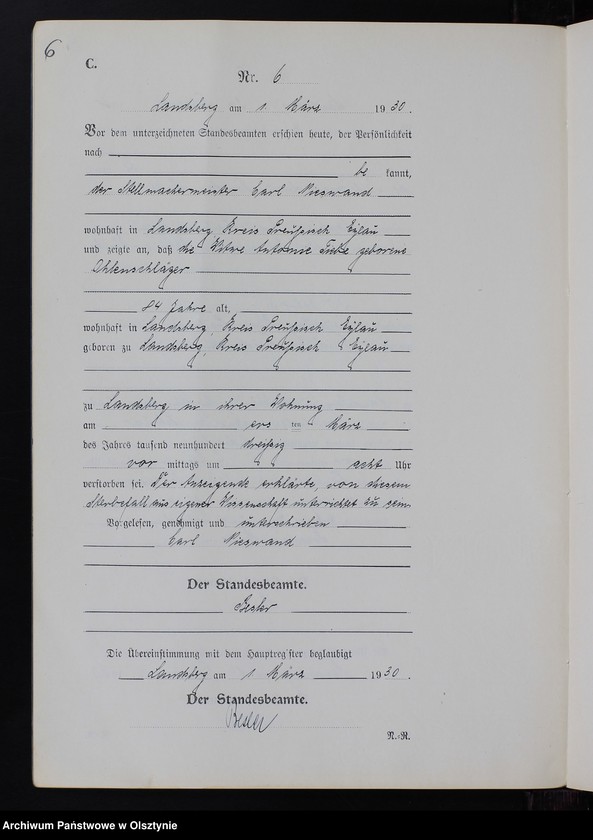 6
C.
Nr. 6
Landsberg am 1 März 1930.
Vor dem unterzeichneten Standesbeamten erschien heute, der Persönlichkeit
nach
be kannt,
der Stellmachermeister Carl Nieswand
wohnhaft in Landsberg Kreis Preußisch Eylau
und zeigte an, daß die Witwe Antonie geborene
Ohlenschläger
84 Jahre alt,
wohnhaft in Landsberg, Kreis Preußisch Eylau
geboren zu Landsberg, Kreis Preußisch Eylau
zu Landsberg in ihrer Wohnung
am ers ten März
des Jahres tausend neunhundert dreißig
vor mittags um acht Uhr
verstorben sei. Der Anzeigende erklärte, von diesem
Sterbefall aus eigener Wissenschaft unterrichtet zu sein.
Vorgelesen, genehmigt und unterschrieben
Carl Nieswand
Der Standesbeamte.
Die Übereinstimmung mit dem Hauptregister beglaubigt
Landsberg am 1 März 1930.
Der Standesbeamte.
N.-R.
Archiwum Państwowe w Olsztynie